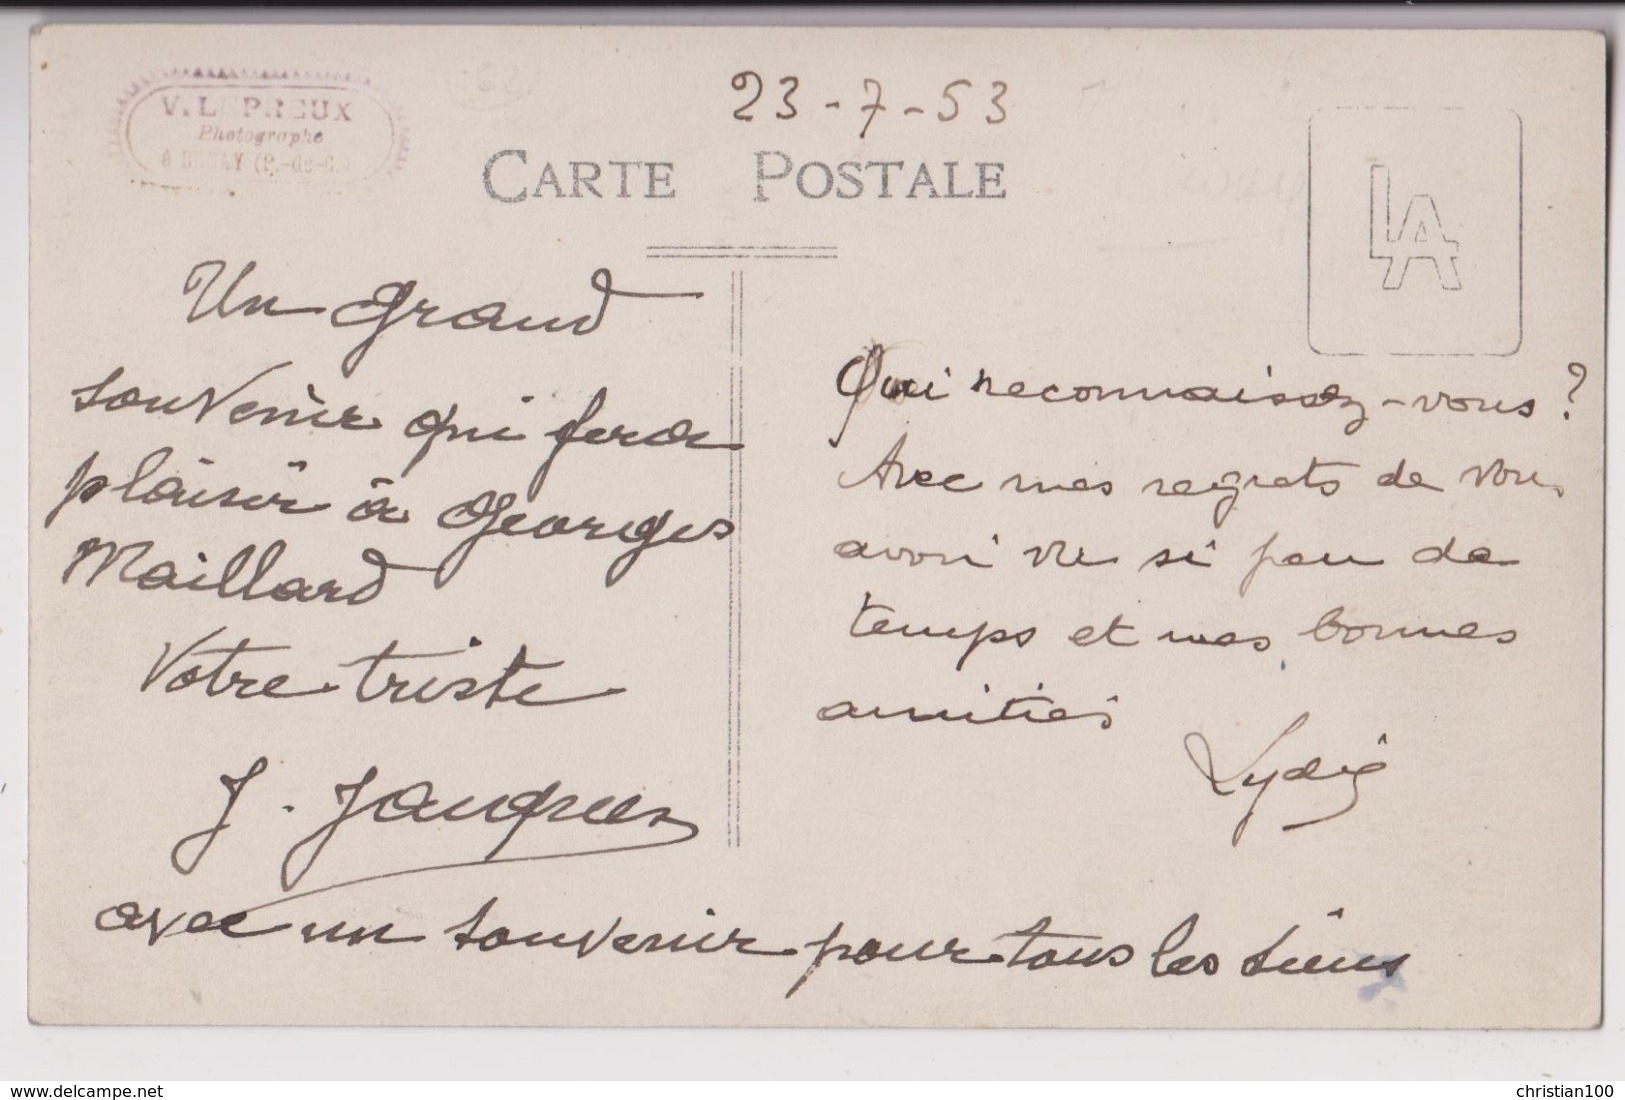 V. LEPREUX
Photographe
à BRUAY (P.-de-C.)
23-7-53
CARTE POSTALE
LA
Un grand
souvenir qui fera
plaisir à Georges
Maillard
Votre triste
J. Jacques
avec un souvenir pour tous les siens
Qui reconnaissez-vous ?
Avec mes regrets de vous
avoir vu si peu de
temps et mes bonnes
amitiés
Lydie
www.delcampe.net
christian100